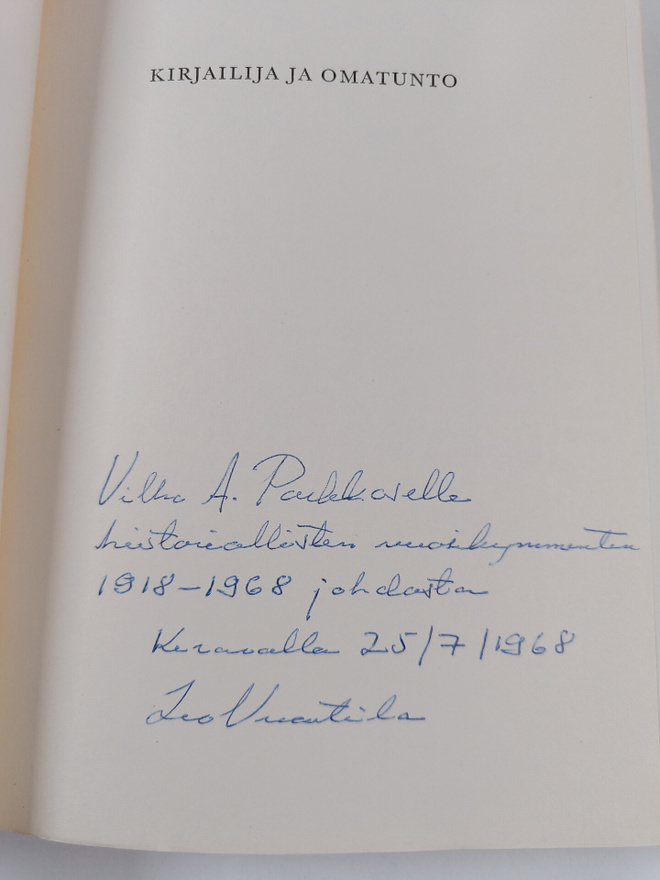 KIRJAILIJA JA OMATUNTO
Vilho A. Parkkoselle
historiallisten vuosikymmenten
1918–1968 johdosta
Keravalla 25/7/1968
Leo Vuotila